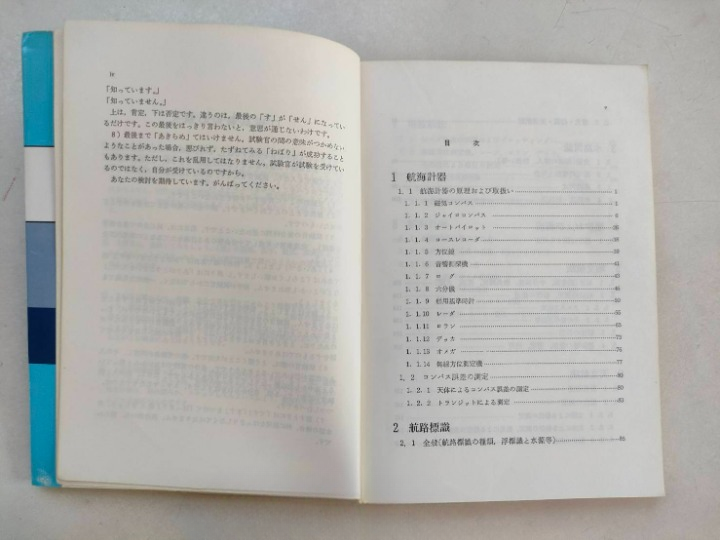 iv
「知っています。」
「知っていません。」
上は，肯定，下は否定です。違うのは，最後の「す」が「せん」になってい
るだけです。この最後をはっきり言わないと，意思が通じないわけです。
8）最後まで「あきらめ」てはいけません。試験官の問の意味がつかめない
ようなことがあった場合，悪びれず，たずねてみる「ねばり」が成功すること
もあります。ただし，これを乱用してはなりません。試験官が試験を受けてい
るのではなく，自分が受けているのですから。
あなたの検討を期待しています。がんばってください。
目 次
1 航海計器
1.1 航海計器の原理および取扱い
1.1.1 磁気コンパス
1.1.2 ジャイロコンパス
1.1.3 オートパイロット
1.1.4 コースレコーダ
1.1.5 方位鏡
1.1.6 音響測深機
1.1.7 ログ
1.1.8 六分儀
1.1.9 船用基準時計
1.1.10 レーダ
1.1.11 ロラン
1.1.12 デッカ
1.1.13 オメガ 76
1.1.14 無線方位測定機 77
1.2 コンパス誤差の測定 80
1.2.1 天体によるコンパス誤差の測定 80
1.2.2 トランジットによる測定
2 航路標識
2.1 全般(航路標識の種類，浮標識と水源等)